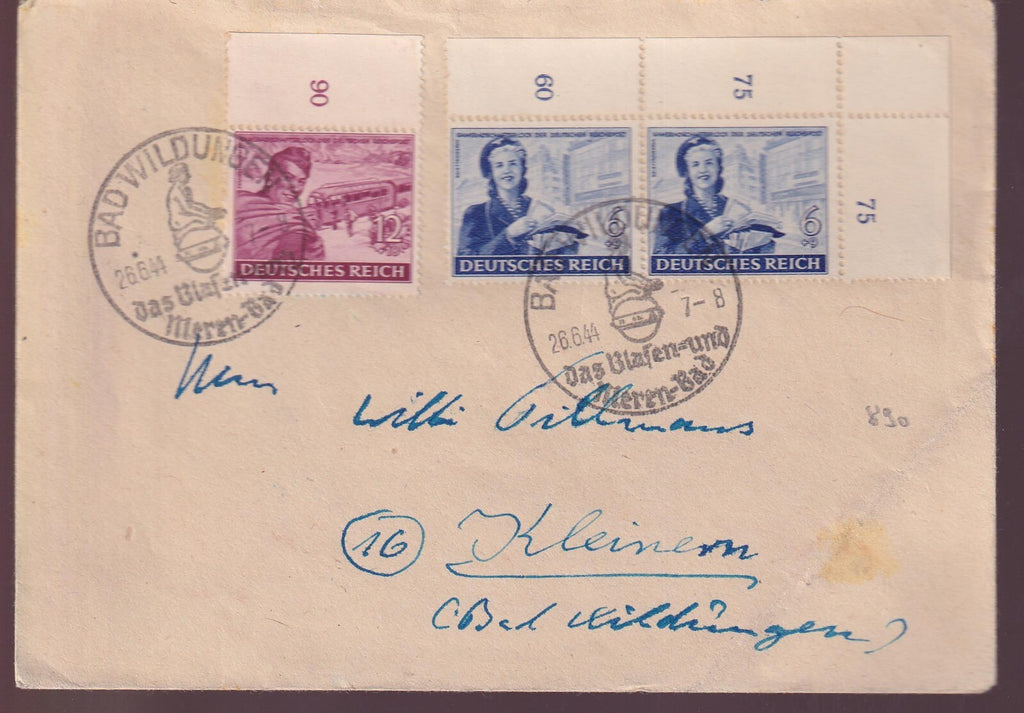 90
60
75
75
12
DEUTSCHES REICH
6
+9
DEUTSCHES REICH
6
+9
DEUTSCHES REICH
BAD WILDUNGEN
26.6.44
das Blasen-
Nieren-Bad
26.6.44
7-8
das Blasen-und
Nieren-Bad
Herrn
Willi Tillmanns
890
16 Kleinern
(Bad Wildungen)